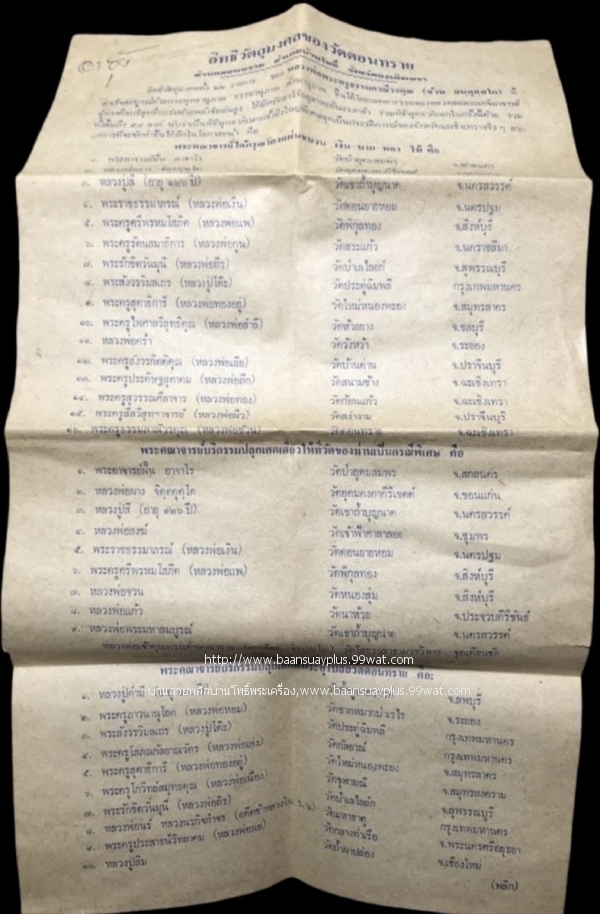 อิทธิวัตถุมงคลของวัดดอนทราย
พระคณาจารย์ได้กรุณาลงแผ่นชนวน เงิน นาก ทอง ให้ คือ
๓. หลวงปู่สี (อายุ ๑๒๖ ปี) วัดเขาถ้ำบุญนาค จ.นครสวรรค์
๔. พระราชธรรมาภรณ์ (หลวงพ่อเงิน) วัดดอนยายหอม จ.นครปฐม
๕. พระครูศรีพรหมโสภิต (หลวงพ่อแพ) วัดพิกุลทอง จ.สิงห์บุรี
๖. พระครูรัตนสมาธิการ (หลวงพ่อกูน) วัดสระแก้ว จ.นครราชสีมา
๗. พระรักขิตวันมุนี (หลวงพ่อถิร) วัดป่าเลไลยก์ จ.สุพรรณบุรี
๘. พระสังวรวิมลเถร (หลวงปู่โต๊ะ) วัดประดู่ฉิมพลี กรุงเทพมหานคร
๙. พระครูสุตาธิการี (หลวงพ่อทองอยู่) วัดใหม่หนองพะอง จ.สมุทรสาคร
๑๐. พระครูไพศาลวิสุทธิคุณ (หลวงพ่อสำลี) วัดห้วยยาง จ.ชลบุรี
๑๑. หลวงพ่อคร่ำ วัดวังหว้า จ.ระยอง
๑๒. พระครูสังวรกิตติคุณ (หลวงพ่อเอีย) วัดบ้านด่าน จ.ปราจีนบุรี
๑๓. พระครูประดิษฐสุตาคม (หลวงพ่อลึก) วัดสนามช้าง จ.ฉะเชิงเทรา
๑๔. พระครูสุวรรณศีลาจาร (หลวงพ่อทอง) วัดก้อนแก้ว จ.ฉะเชิงเทรา
๑๕. พระครูสีลวิสุทธาจารย์ (หลวงพ่อผิว) วัดสง่างาม จ.ปราจีนบุรี
๑๖. พระครูธรรมภาณีวรคุณ (หลวงพ่อช้วน) วัดดอนทราย จ.ฉะเชิงเทรา
พระคณาจารย์บริกรรมปลุกเศกเดี่ยวให้ที่วัดของท่านเป็นกรณีพิเศษ คือ
๑. พระอาจารย์ฝั้น อาจาโร วัดป่าอุดมสมพร จ.สกลนคร
๒. หลวงพ่อผาง จิตฺตคุตฺโต วัดอุดมคงคาคีรีเขตต์ จ.ขอนแก่น
๓. หลวงปู่สี (อายุ ๑๒๖ ปี) วัดเขาถ้ำบุญนาค จ.นครสวรรค์
๔. หลวงพ่อสงฆ์ วัดเจ้าฟ้าศาลาลอย จ.ชุมพร
๕. พระราชธรรมาภรณ์ (หลวงพ่อเงิน) วัดดอนยายหอม จ.นครปฐม
๖. พระครูศรีพรหมโสภิต (หลวงพ่อแพ) วัดพิกุลทอง จ.สิงห์บุรี
๗. หลวงพ่อจวน วัดหนองสุ่ม จ.สิงห์บุรี
๘. หลวงพ่อแก้ว วัดนาห้วย จ.ประจวบคีรีขันธ์
๙. หลวงพ่อพระมหาสมบูรณ์ วัดเขาถ้ำบุญนาค จ.นครสวรรค์
http://www.baansuayplus.99wat.com
บ้านสวยพลัสบ้านโพธิ์พระเครื่อง,www.baansuayplus.99wat.com
๑. หลวงปู่คำมี จ.ลพบุรี
๒. พระครูภาวนานุโยค (หลวงพ่อหอม) วัดชากหมากป่าเรไร จ.ระยอง
๓. พระสังวรวิมลเถร (หลวงปู่โต๊ะ) วัดประดู่ฉิมพลี กรุงเทพมหานคร
๔. พระครูโสภณกัลยาณวัตร (หลวงพ่อเส่ง) วัดกัลยาณ์ กรุงเทพมหานคร
๕. พระครูสุตาธิการี (หลวงพ่อทองอยู่) วัดใหม่หนองพะอง จ.สมุทรสาคร
๖. พระครูโกวิทสมุทรคุณ (หลวงพ่อเนื่อง) วัดจุฬามณี จ.สมุทรสงคราม
๗. พระรักขิตวันมุนี (หลวงพ่อถิร) วัดป่าเลไลยก์ จ.สุพรรณบุรี
๘. หลวงพ่อนร์ วัดมหาธาตุ กรุงเทพมหานคร
๙. พระครูประสาธน์วิทยาคม (หลวงพ่อนอ) วัดกลางท่าเรือ จ.พระนครศรีอยุธยา
๑๐. หลวงปู่สิม วัดถ้ำผาปล่อง จ.เชียงใหม่
(พลิก)